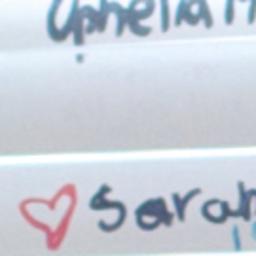 Ophelia
♥ Sarah